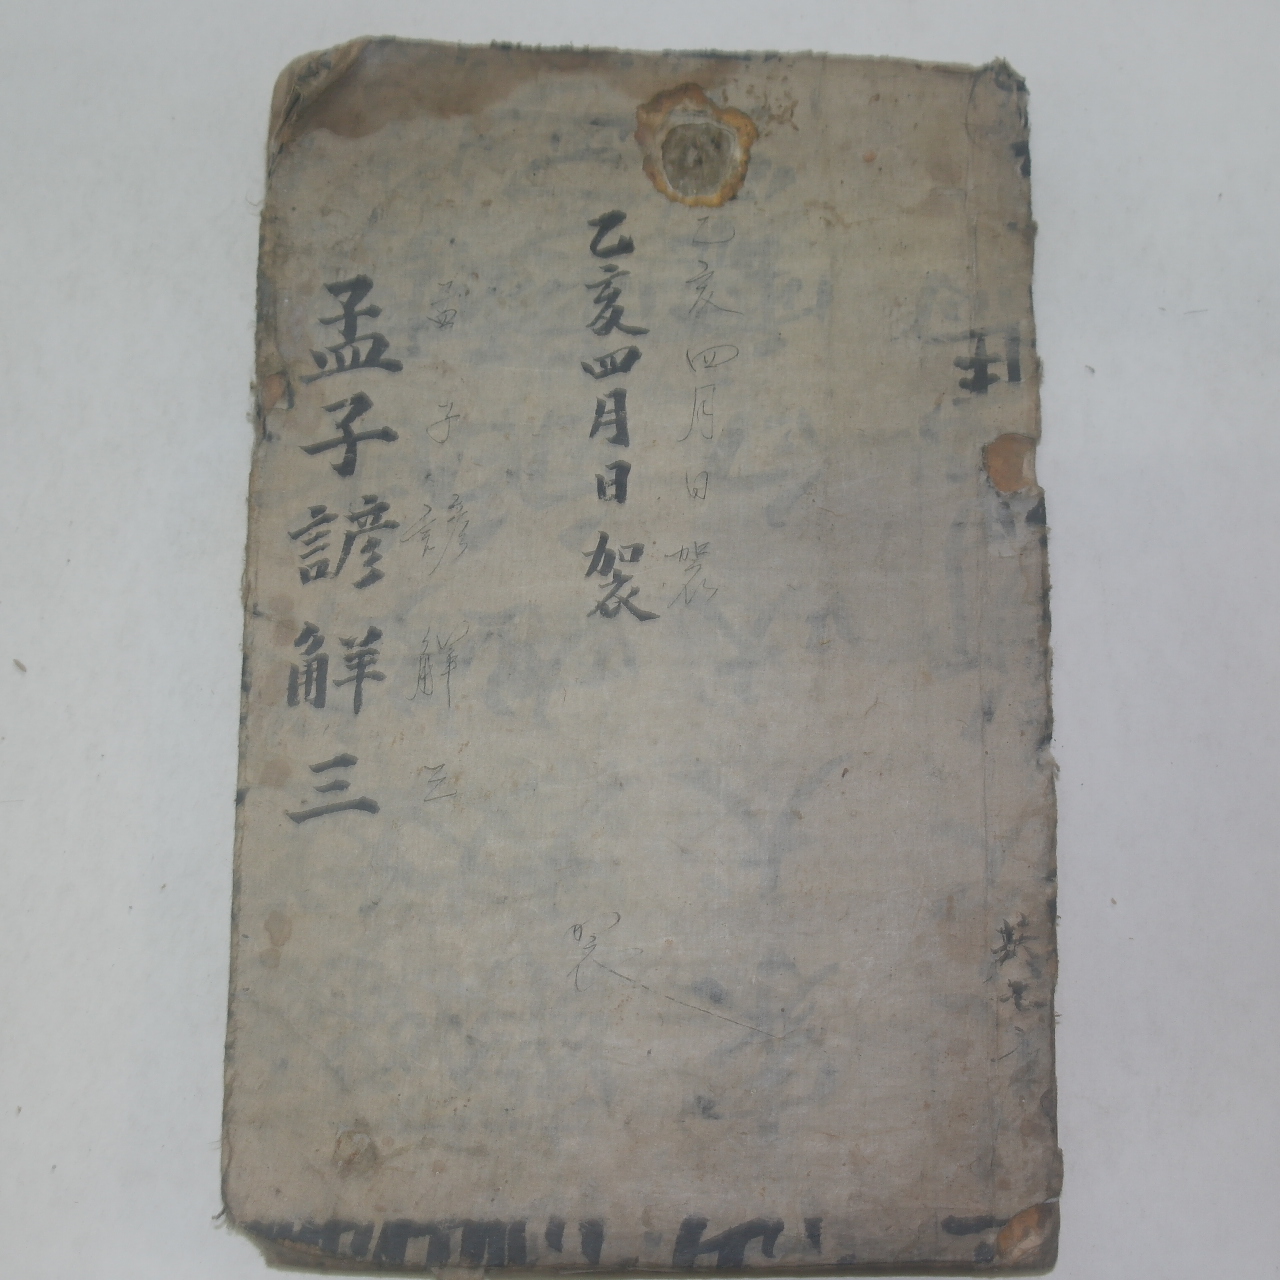 共七
乙亥四月日袈
乙亥四月日袈
袈
孟子諺解三
孟子諺解三